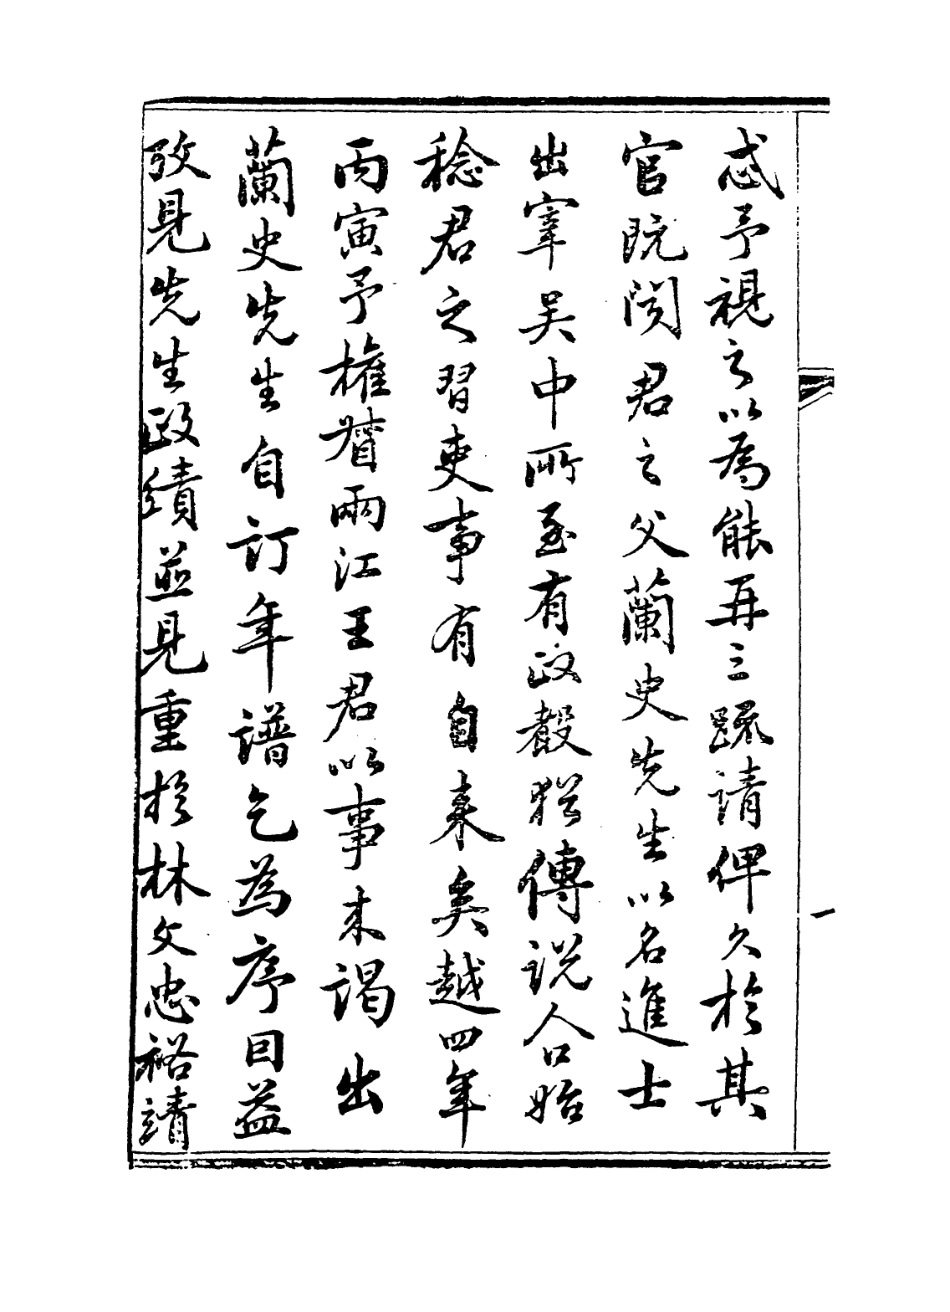 忒予視之以為能再三疏請俾久於其
官既閱君之父蘭史先生以名進士
出宰吳中所至有政聲猶傳說人口始
稔君之習吏事有自來矣越四年
丙寅予權督兩江王君以事來謁出
蘭史先生自訂年譜乞為序因益
攷見先生政績並見重於林文忠裕靖
一